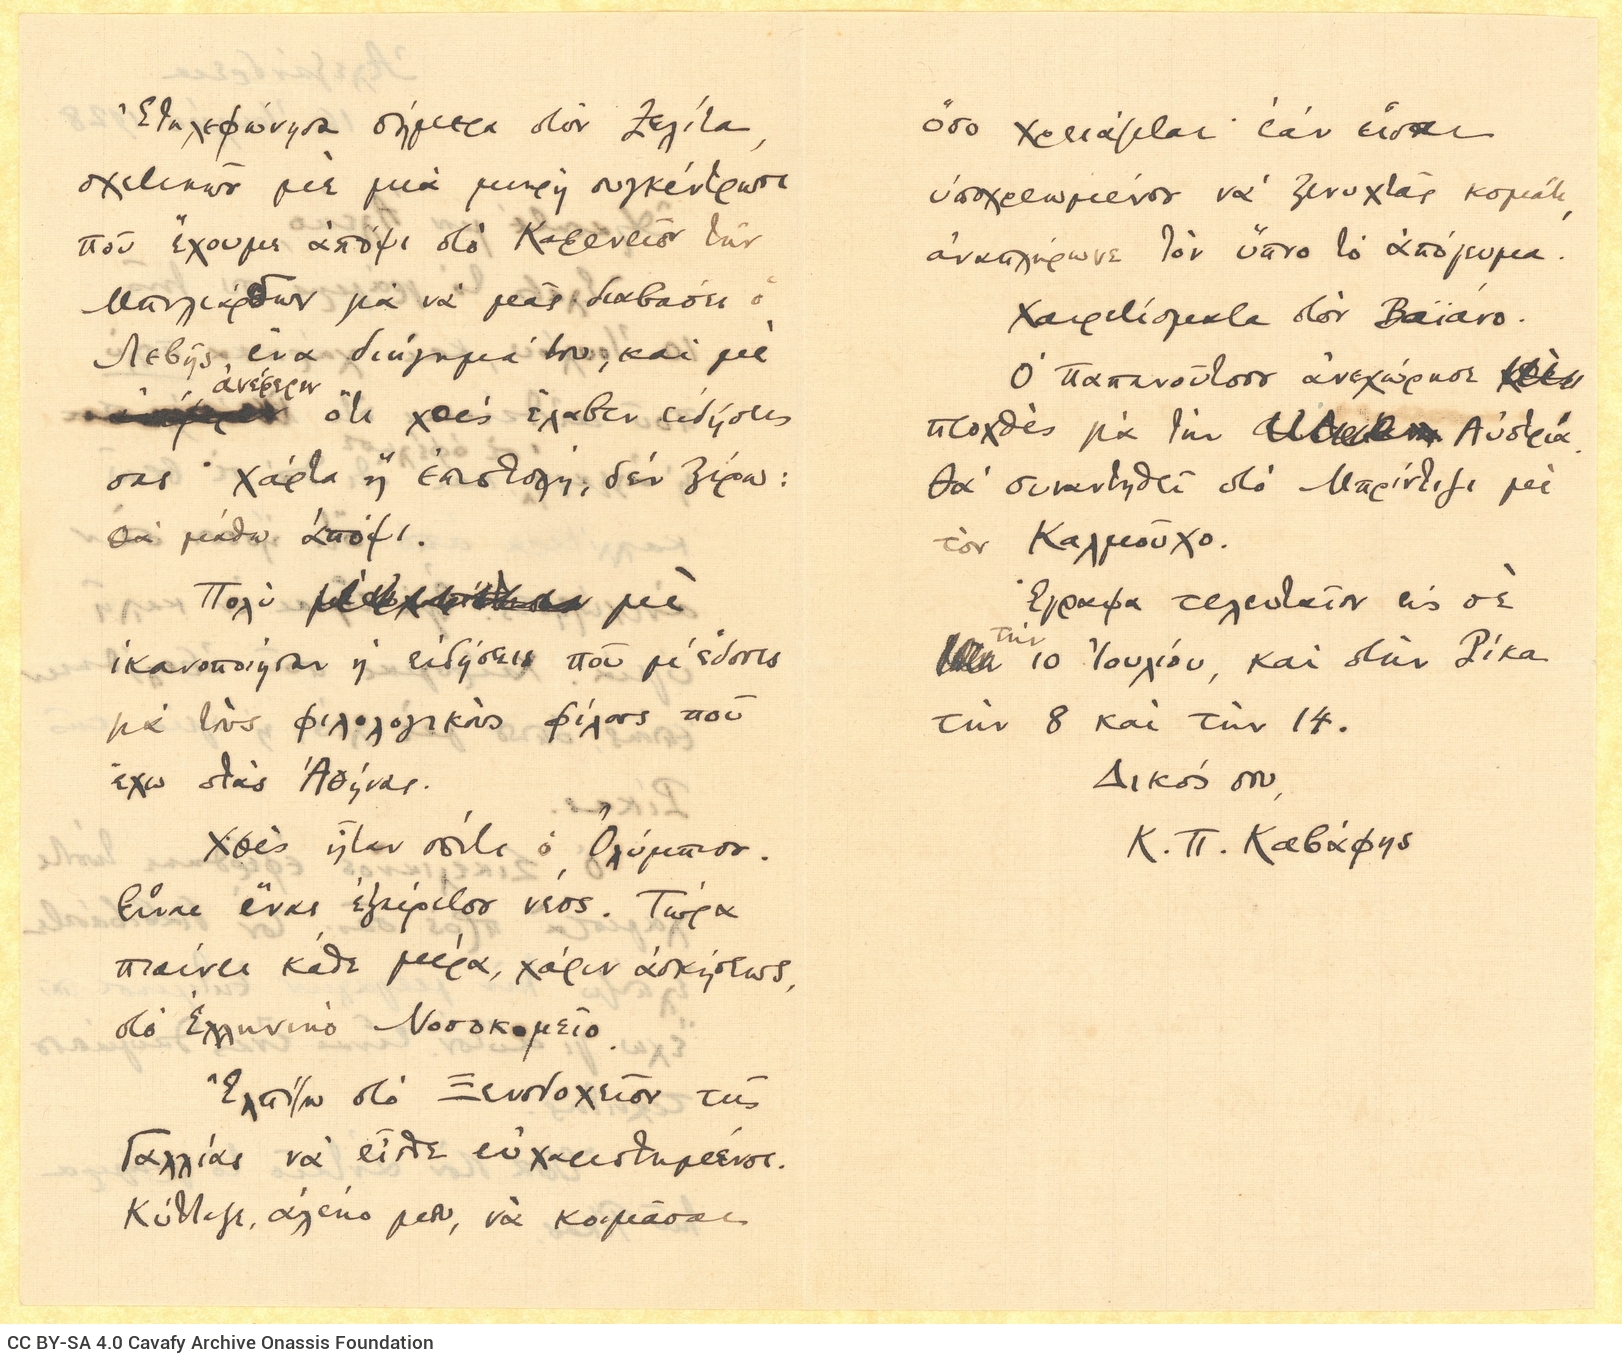 Ἐτηλεφώνησα σήμερα στὸν Ζελίτα,
σχετικῶς μὲ μιὰ μικρὴ συγκέντρωσι
ποῦ ἔχουμε ἀπόψι στὸ Καφενεῖον τῶν
Μπιλιάρδων γιὰ νὰ μᾶς διαβάσει ὁ
Λεβῆς ἕνα διήγημά του, καὶ μὲ
ἀνέφερεν
ὅτι χθὲς ἔλαβεν εἰδήσεις
σας· χάρτα ἢ ἐπιστολή, δὲν ξέρω:
θὰ μάθω ἀπόψι.
Πολὺ μὲ
ἱκανοποίησαν ἡ εἰδήσεις ποῦ μ' ἔδοσες
γιὰ τοὺς φιλολογικοὺς φίλους ποῦ
ἔχω στὰς Ἀθήνας.
Χθὲς ἦταν σπίτι ὁ Ὀλύμπιος.
Εἶναι ἕνας ἐξαίρετος νέος. Τώρα
πιαίνει κάθε μέρα, χάριν ἀσκήσεως,
στὸ Ἑλληνικὸ Νοσοκομεῖο.
Ἐλπίζω στὸ Ξενοδοχεῖον τῆς
Γαλλίας νὰ εἶσθε εὐχαριστημένοι.
Κύτταξε, ἀλέκο μου, νὰ κοιμᾶσαι
ὅσο χρειάζεται· ἐὰν εἶσαι
ὑποχρεωμένος νὰ ξενυχτᾶς κομάτι,
ἀναπλήρωνε τὸν ὕπνο τὸ ἀπόγευμα.
Χαιρετίσματα στὸν Βαϊάνο.
Ὁ Παπανοῦτσος ἀνεχώρησε
προχθὲς γιὰ τὴν Αὐστρία.
Θὰ συναντηθεῖ στὸ Μπρίντεζι μὲ
τὸν Καλμοῦχο.
Ἔγραψα τελευταῖον εἰς σὲ
τὴν
10 Ἰουλίου, καὶ στὴν Ρίκα
τὴν 8 καὶ τὴν 14.
Δικός σου,
Κ. Π. Καβάφης
CC BY-SA 4.0 Cavafy Archive Onassis Foundation